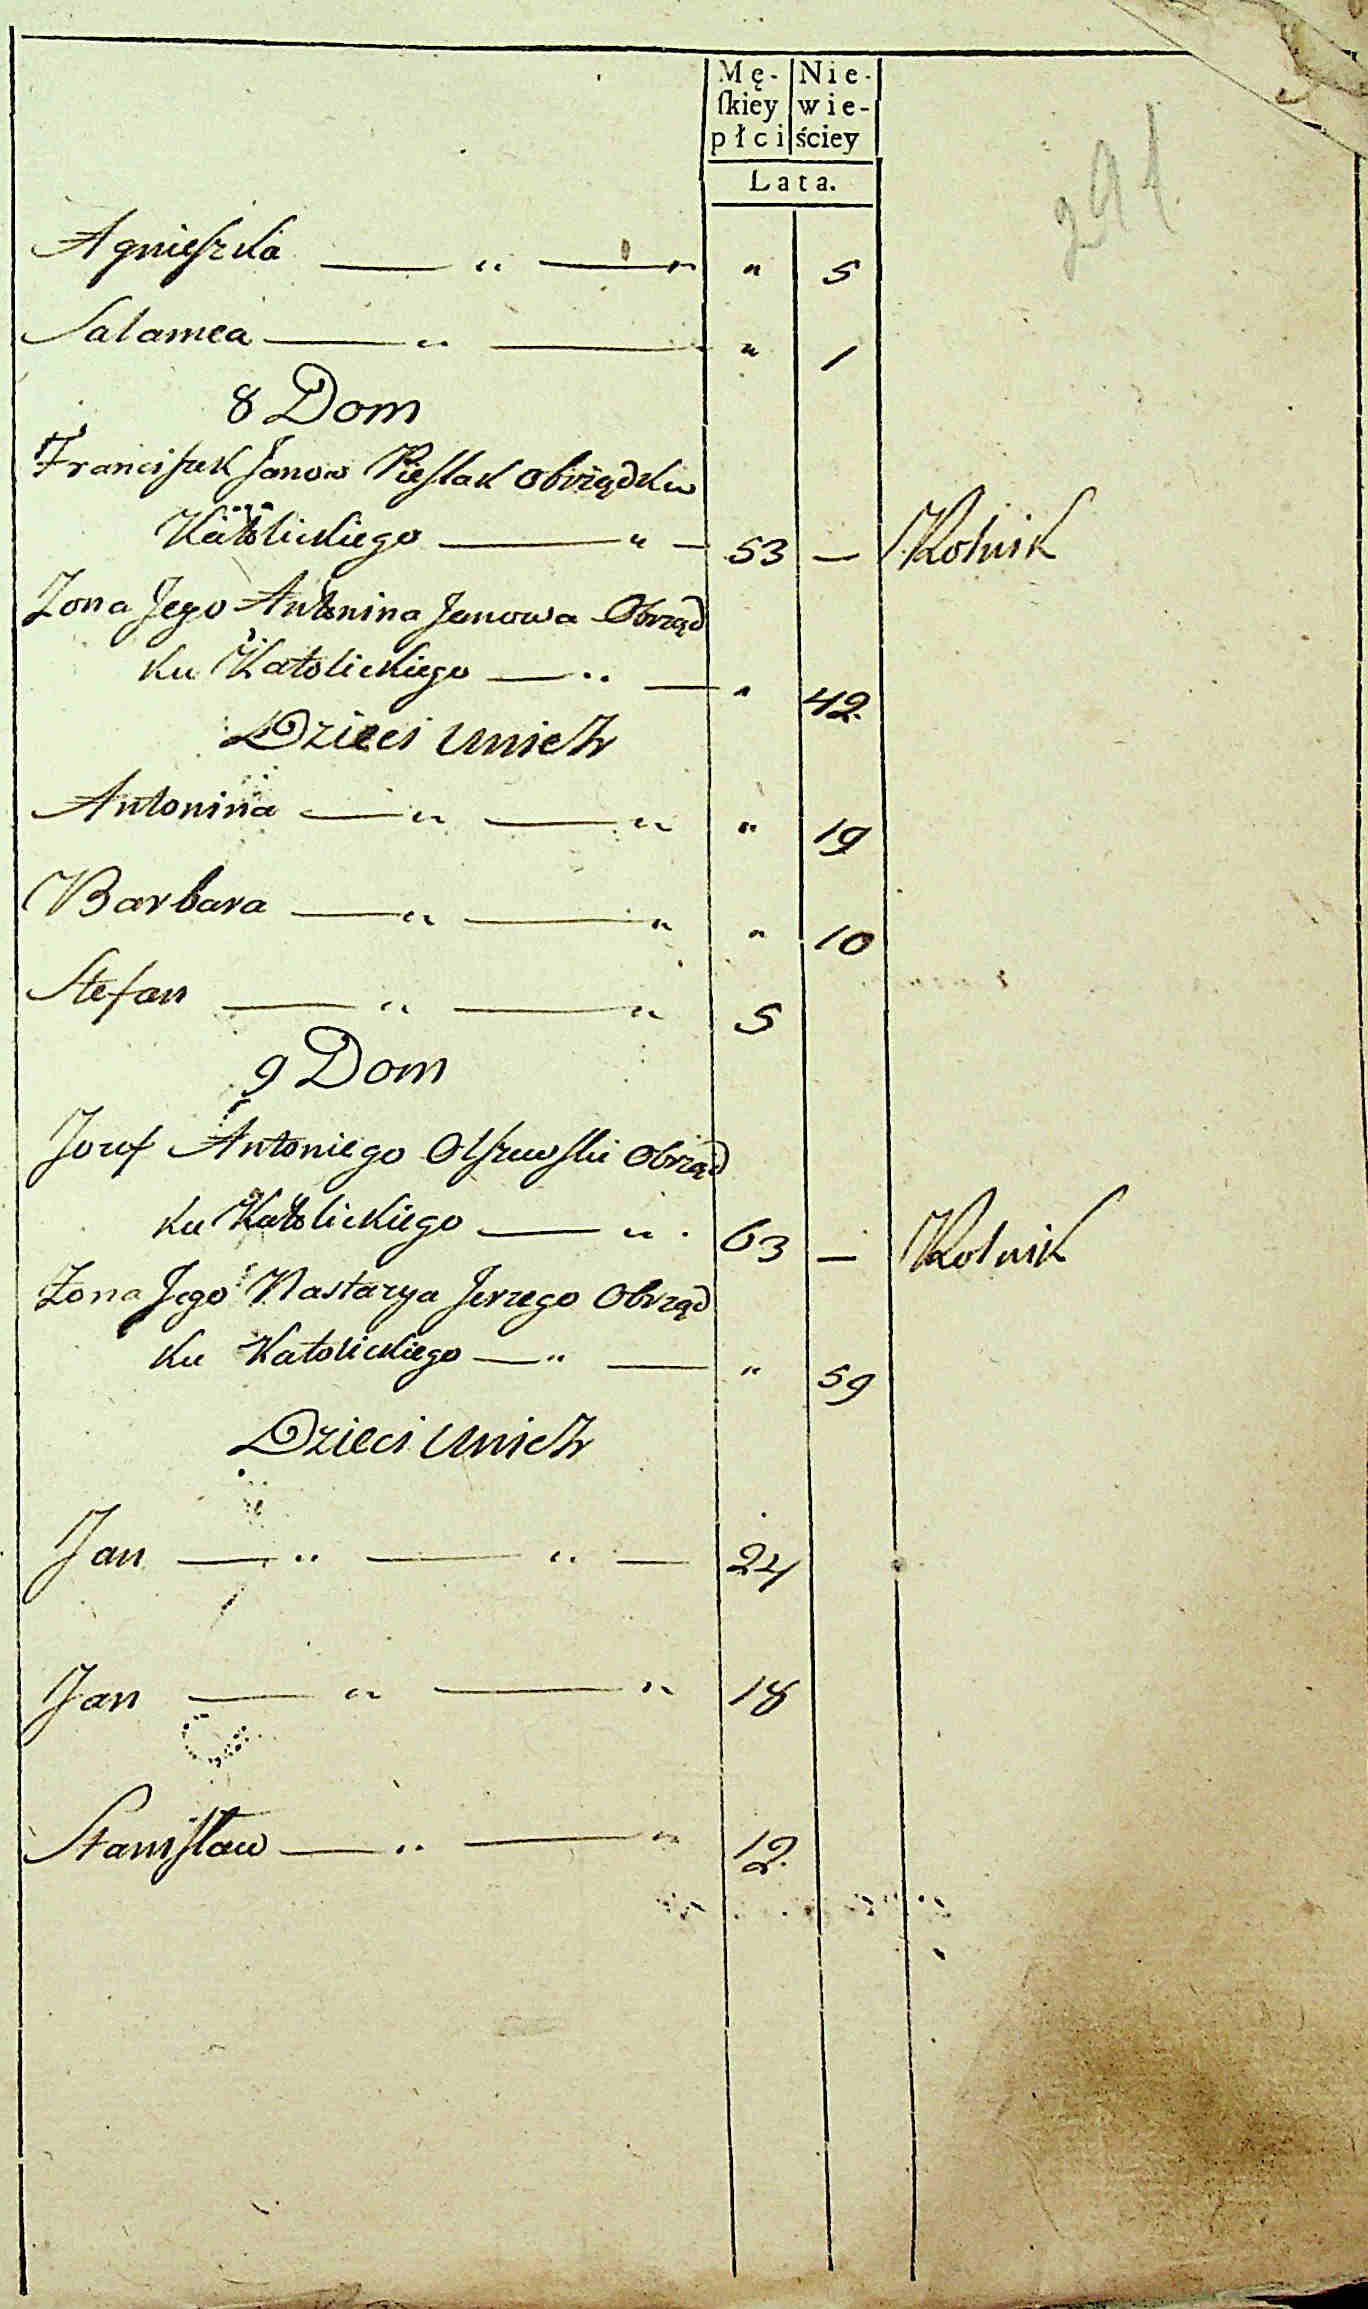 Mę- Nie-
ſkiey wie-
płci ściey
Lata.
291
Agnieſzka — " — " " 5
Salamea — " — " 1
8 Dom
Franciſzek Janow Pieſlak Obrządku
Katolickiego — " — 53 — Rolnik
Zona Jego Antonina Janowa Obrząd
ku Katolickiego — " — " 42.
Dzieci Unich
Antonina — " — " " 19
Barbara — " — " " 10
Stefan — " — " 5
9 Dom
Jozef Antoniego Olſzewſki Obrząd
ku Katolickiego — " 63 — Rolnik
Zona Jego Nastazya Jerzego Obrząd
ku Katolickiego — " — " 59
Dzieci Unich
Jan — " — " — 24
Jan — " — " 18
Staniſław — " — " 12.